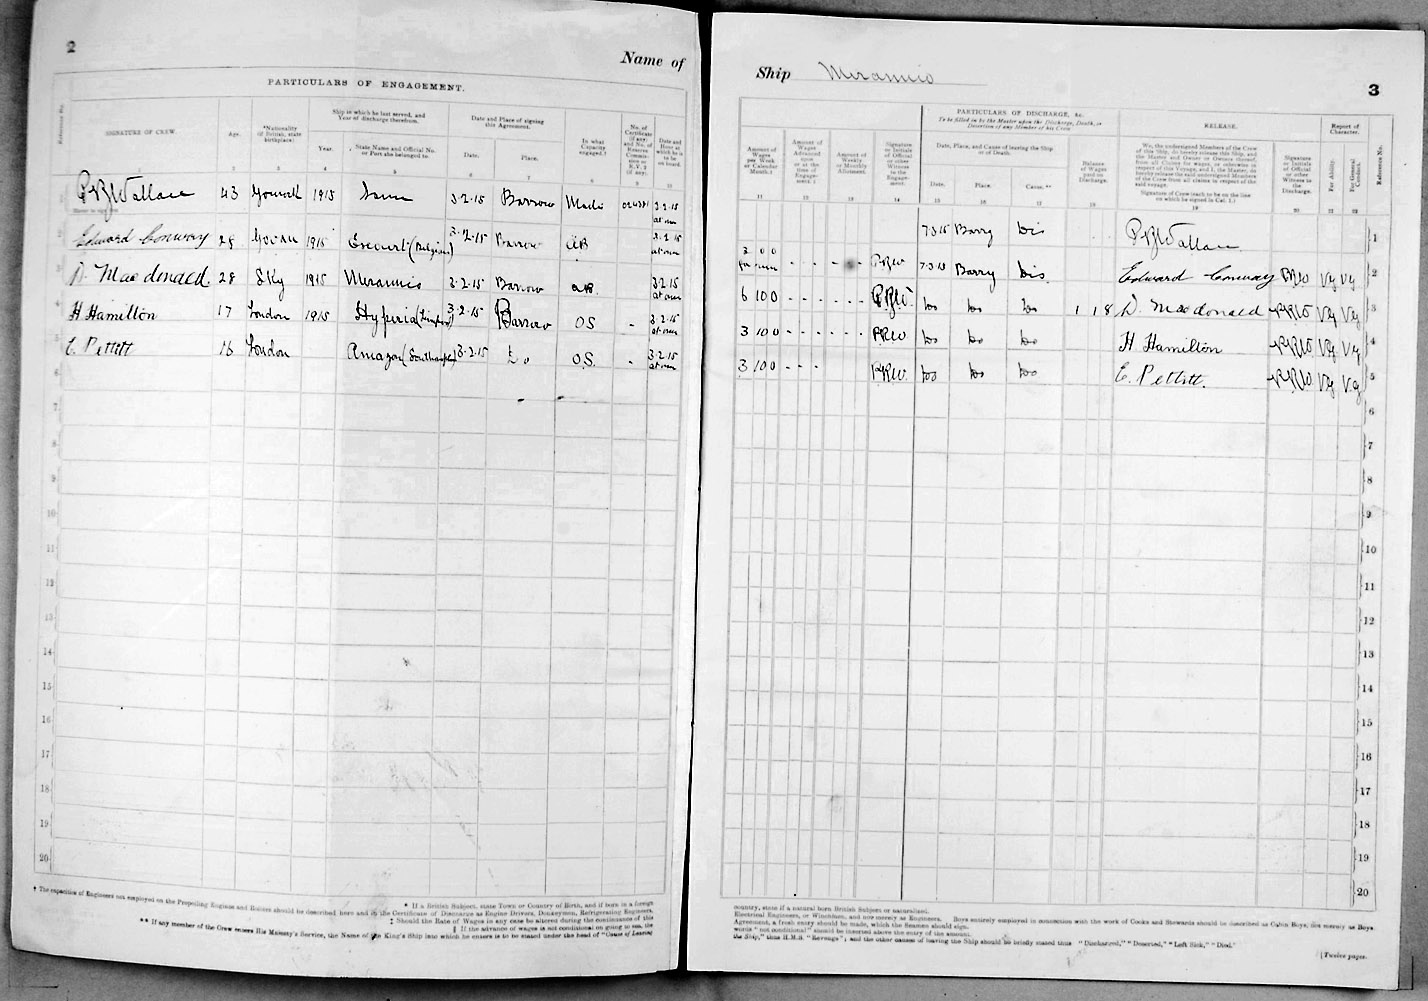 2
Name of
PARTICULARS OF ENGAGEMENT.
Reference No.
SIGNATURE OF CREW.
Age.
*Nationality (if British, state birthplace.)
Ship in which he last served, and Year of discharge therefrom.
Year.
State Name and Official No. or Port she belonged to.
Date and Place of signing this Agreement.
Date.
Place.
In what Capacity engaged.†
No. of Certificate (if any) and No. of Reserve Commission or R.V. 2 (if any).
Date and Hour at which he is to be on board.
2 3 4 5 6 7 8 9 10
43 Youvall 1915 Same 3.2.15 Barrow 3.2.15
Edward Conway 28 1915 3.2.15 Barrow AB 3.2.15
D. Macdonald. 28 Sky 1915 Miramnio 3.2.15 Barrow AB. 3.2.15
H Hamilton 17 London 1915 Hyperia 3.2.15 Barrow OS - 3.2.15
E. Pettitt 16 London Amazon (Southampton) 3.2.15 Do OS. - 3.2.15
7
8
9
10
11
12
13
14
15
16
17
18
19
20
† The capacities of Engineers not employed on the Propelling Engines and Boilers should be described here and in the Certificate of Discharge as Engine Drivers, Donkeymen, Refrigerating Engineers,
* If a British Subject, state Town or Country of Birth, and if born in a foreign
‡ Should the Rate of Wages in any case be altered during the continuance of this
‖ If the advance of wages is not conditional on going to sea, the
** If any member of the Crew enters His Majesty's Service, the Name of the King's Ship into which he enters is to be stated under the head of "Cause of Leaving
Ship Miramnio
3
PARTICULARS OF DISCHARGE, &c.
To be filled in by the Master upon the Discharge, Death, or Desertion of any Member of his Crew
RELEASE.
Report of Character.
Amount of Wages per Week or Calendar Month.‡
Amount of Wages Advanced upon or at the time of Engagement.‖
Amount of Weekly or Monthly Allotment.
Signature or Initials of Official or other Witness to the Engagement.
Date, Place, and Cause of leaving the Ship or of Death.
Date.
Place.
Cause.**
Balance of Wages paid on Discharge.
We, the undersigned Members of the Crew of this Ship, do hereby release this Ship, and the Master and Owner or Owners thereof, from all Claims for wages, or otherwise in respect of this Voyage, and I, the Master, do hereby release the said undersigned Members of the Crew from all claims in respect of the said voyage.
Signature of Crew (each to be on the line on which he signed in Col. 1.)
Signature or Initials of Official or other Witness to the Discharge.
For Ability.
For General Conduct.
Reference No.
11 12 13 14 15 16 17 18 19 20 21 22
7.3.15 Barry Dis 1
3 0 0 7.3.15 Barry Dis. Edward Conway Vg Vg 2
6 10 0 Do Do Do 1 18 D. Macdonald Vg Vg 3
3 10 0 Do Do Do H Hamilton Vg Vg 4
3 10 0 Do Do Do E. Pettitt. Vg Vg 5
6
7
8
9
10
11
12
13
14
15
16
17
18
19
20
country, state if a natural born British Subject or naturalized.
Electrical Engineers, or Winchmen, and not merely as Engineers. Boys entirely employed in connection with the work of Cooks and Stewards should be described as Cabin Boys, not merely as Boys
Agreement, a fresh entry should be made, which the Seamen should sign.
words "not conditional" should be inserted above the entry of the amount.
the Ship," thus H.M.S. "Revenge"; and the other causes of leaving the Ship should be briefly stated thus "Discharged," "Deserted," "Left Sick," "Died."
[Twelve pages.